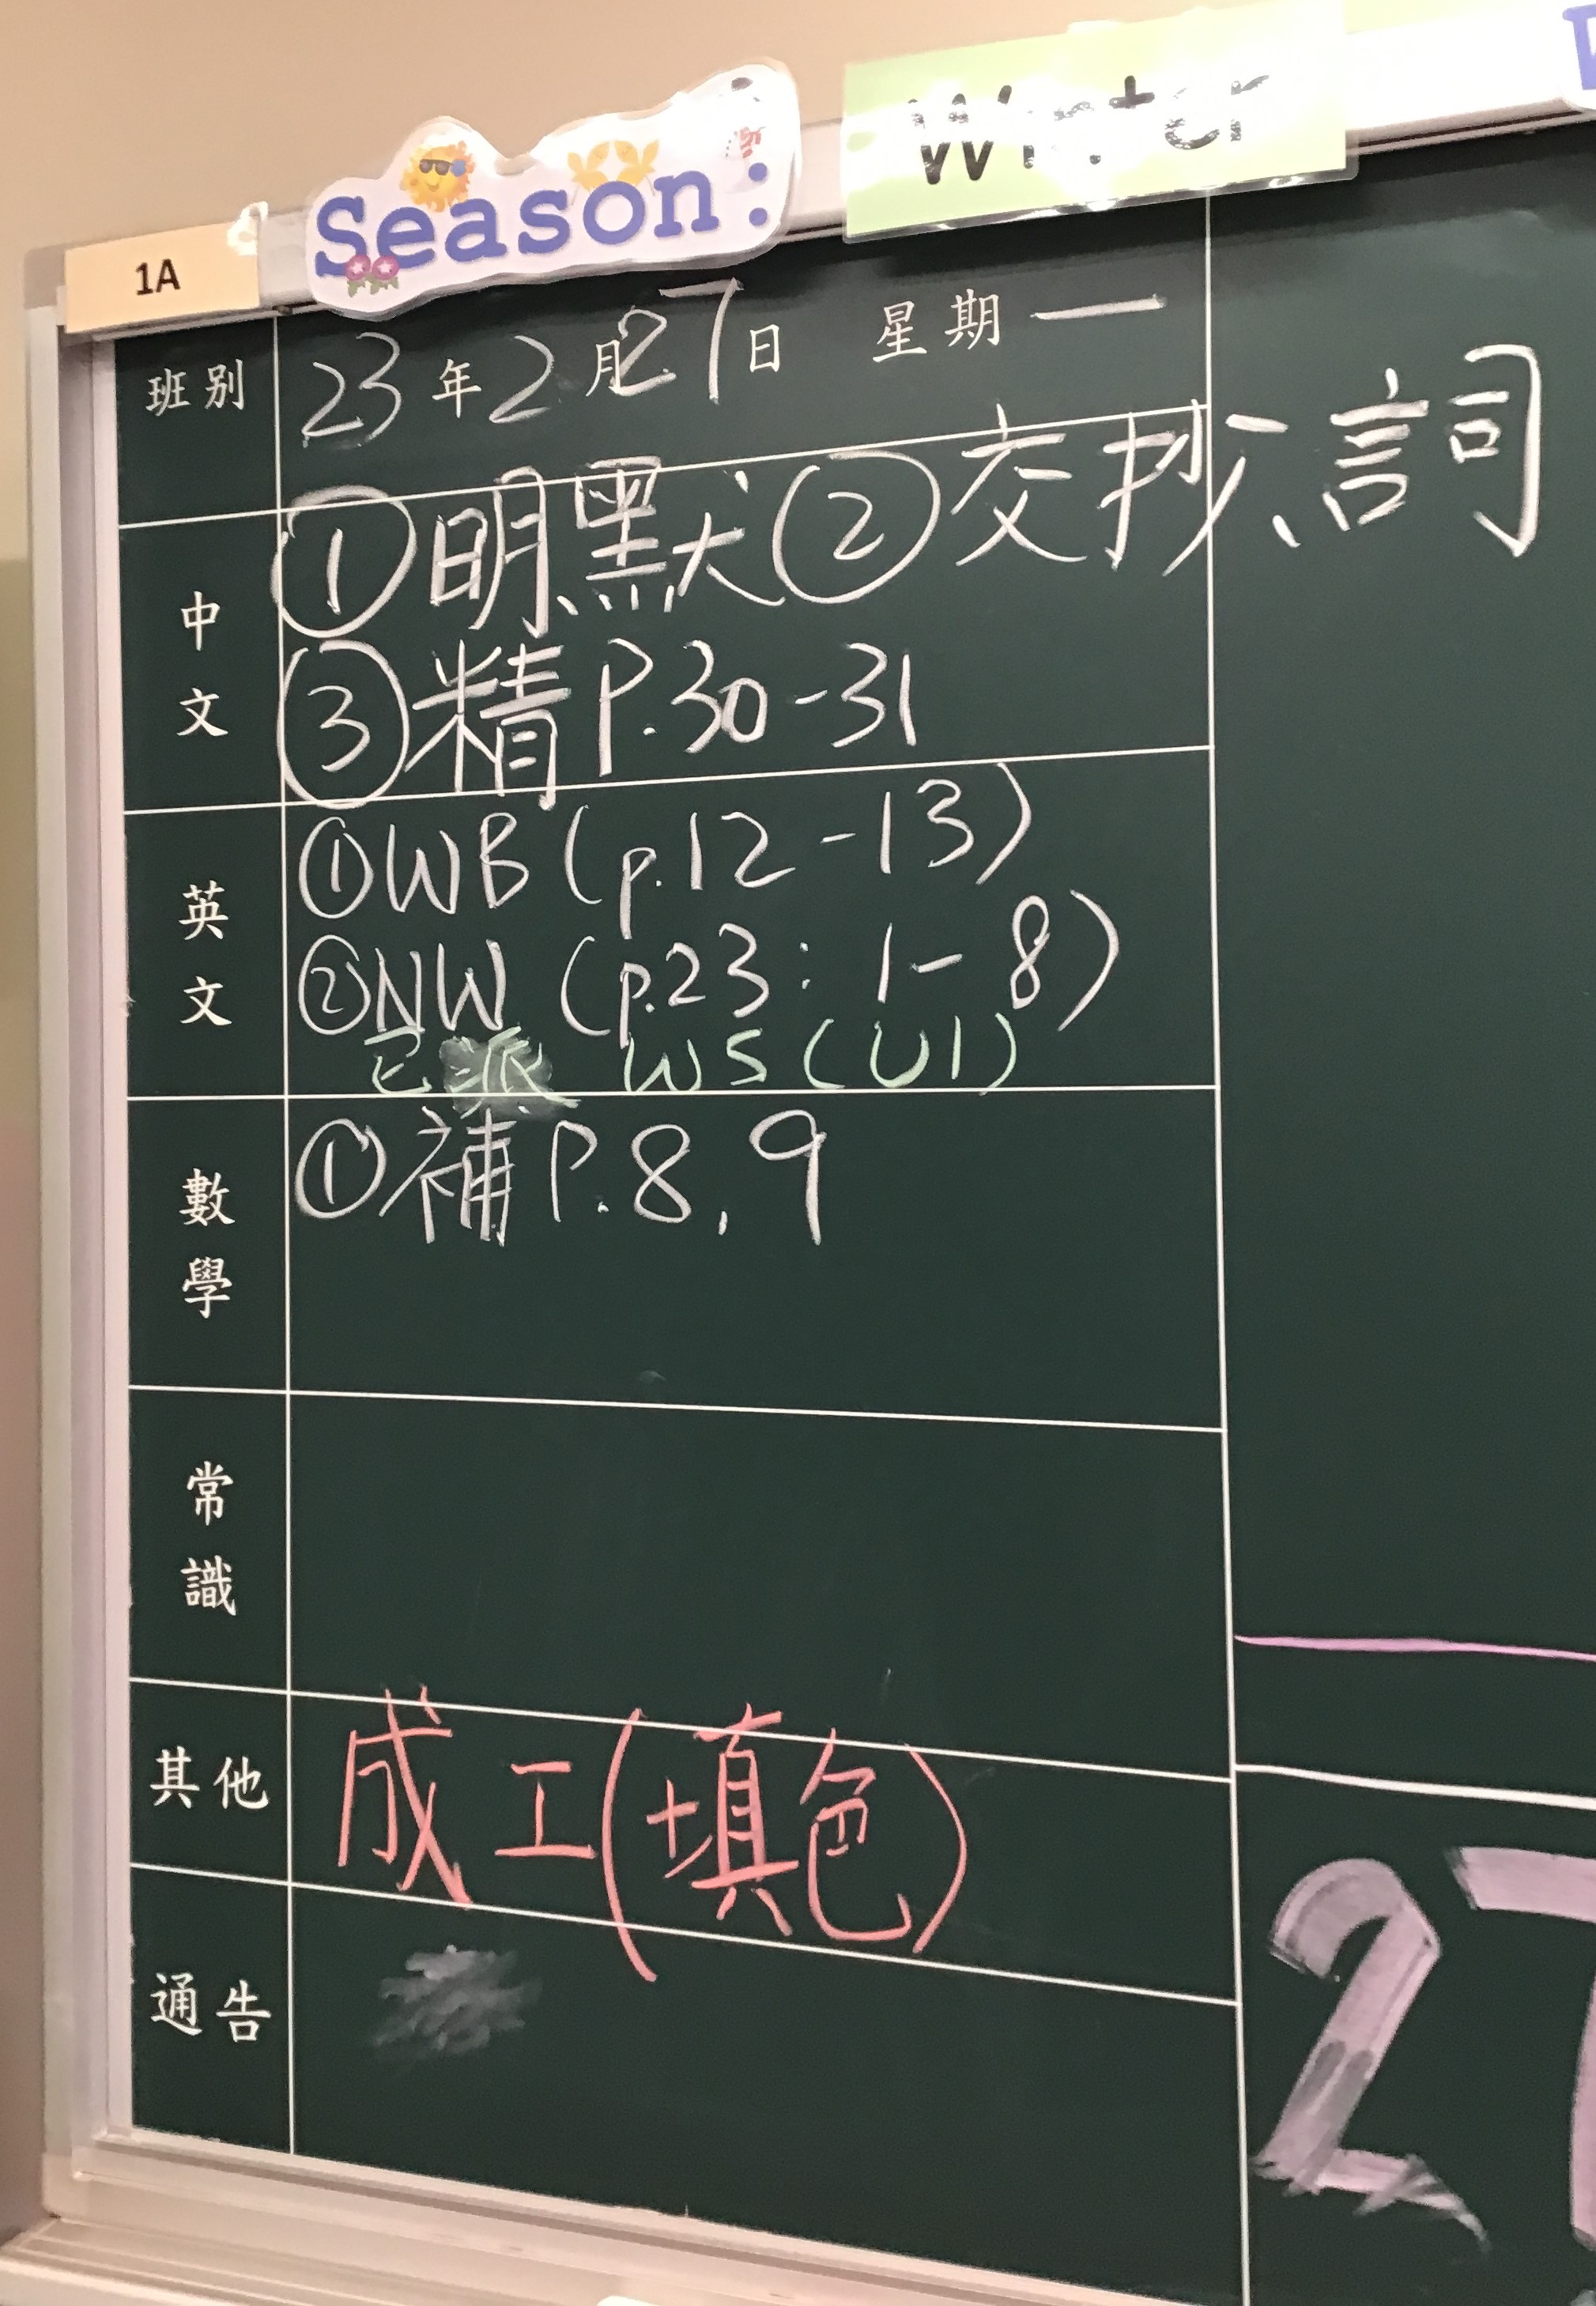 Season: Winter
1A
班別 23年2月27日 星期一
中文 ①明默②交抄、詞
③精P.30-31
英文 ①WB (p.12-13)
②NW (p.23: 1-8)
已派 WS (U1)
數學 ①補P.8, 9
常識
其他 成工(填色)
通告
27